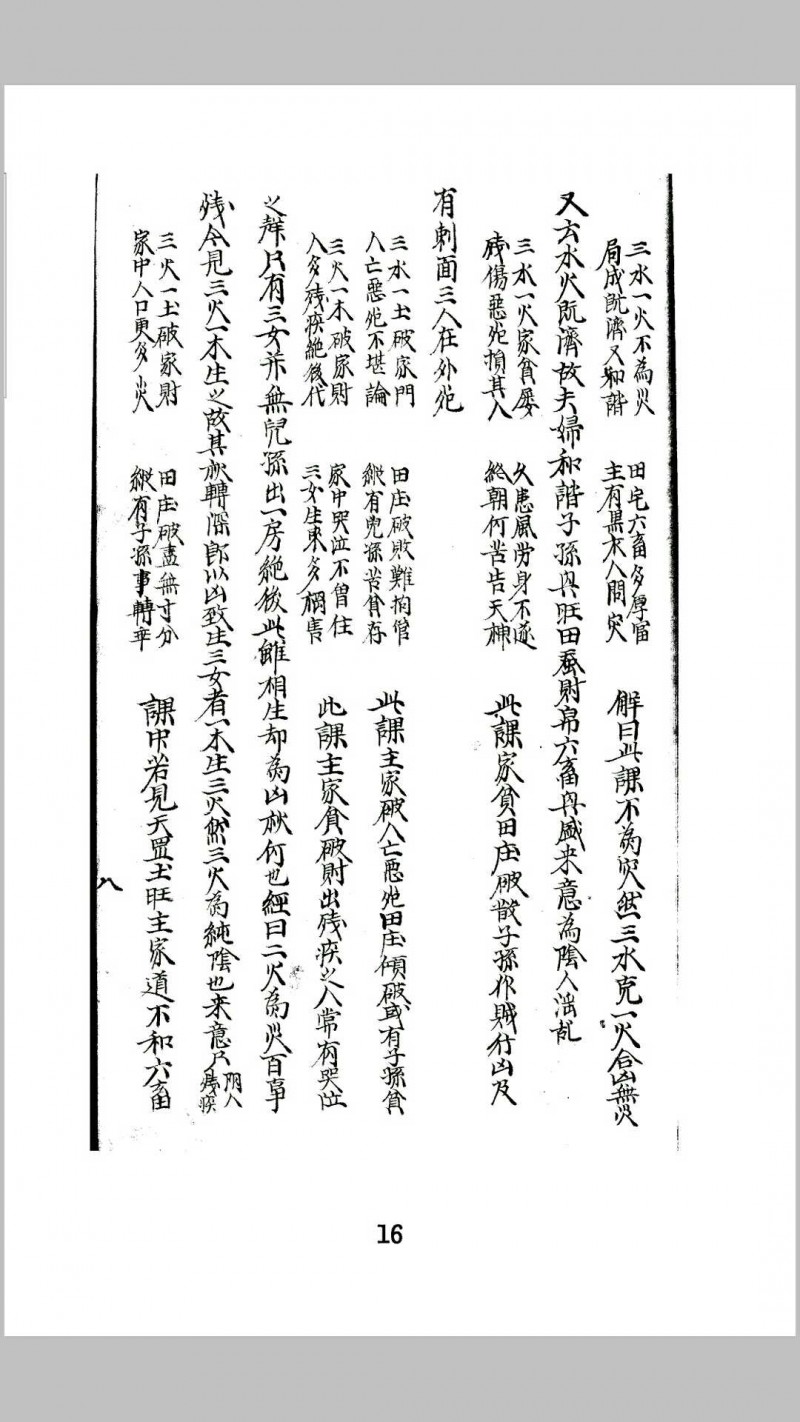 三水一火不為災　田宅六畜多厚富　解曰此課不為災然三水克一火合凶無災
局成既濟又和諧　主有黑衣人問災
又云水火既濟故夫婦和諧子孫興旺田蚕財帛六畜興盛来意為陰人淫乱
三水一火家貧屡　久患風労身不遂　此課家貧田庄破散子孫作賊行凶及
残傷惡死損其人　終朝何苦告天神
有刺面三人在外死
三水一土破家門　田庄破敗難拘管　此課主家破人亡惡死田庄傾破或有子孫貧
人亡惡死不堪論　縱有兒孫苦貧存
三火一木破家財　家中哭泣不曾住　此課主家貧破財出残疾之人常有哭泣
人多残疾絶後代　三女生来多
之聲只有三女并無兒孫出一房絶後此雖相生却為凶秋何也經曰二火為災百事
残今見三火一木生之故其秋轉深即以凶致生三女者一木生三火然三火為純陰也来意只
陰人
残疾
三火一土破家財　田庄破盡無寸分　課中若見天罡土旺主家道不和六畜
家中人口更多災　縱有子孫事轉乖
八
16